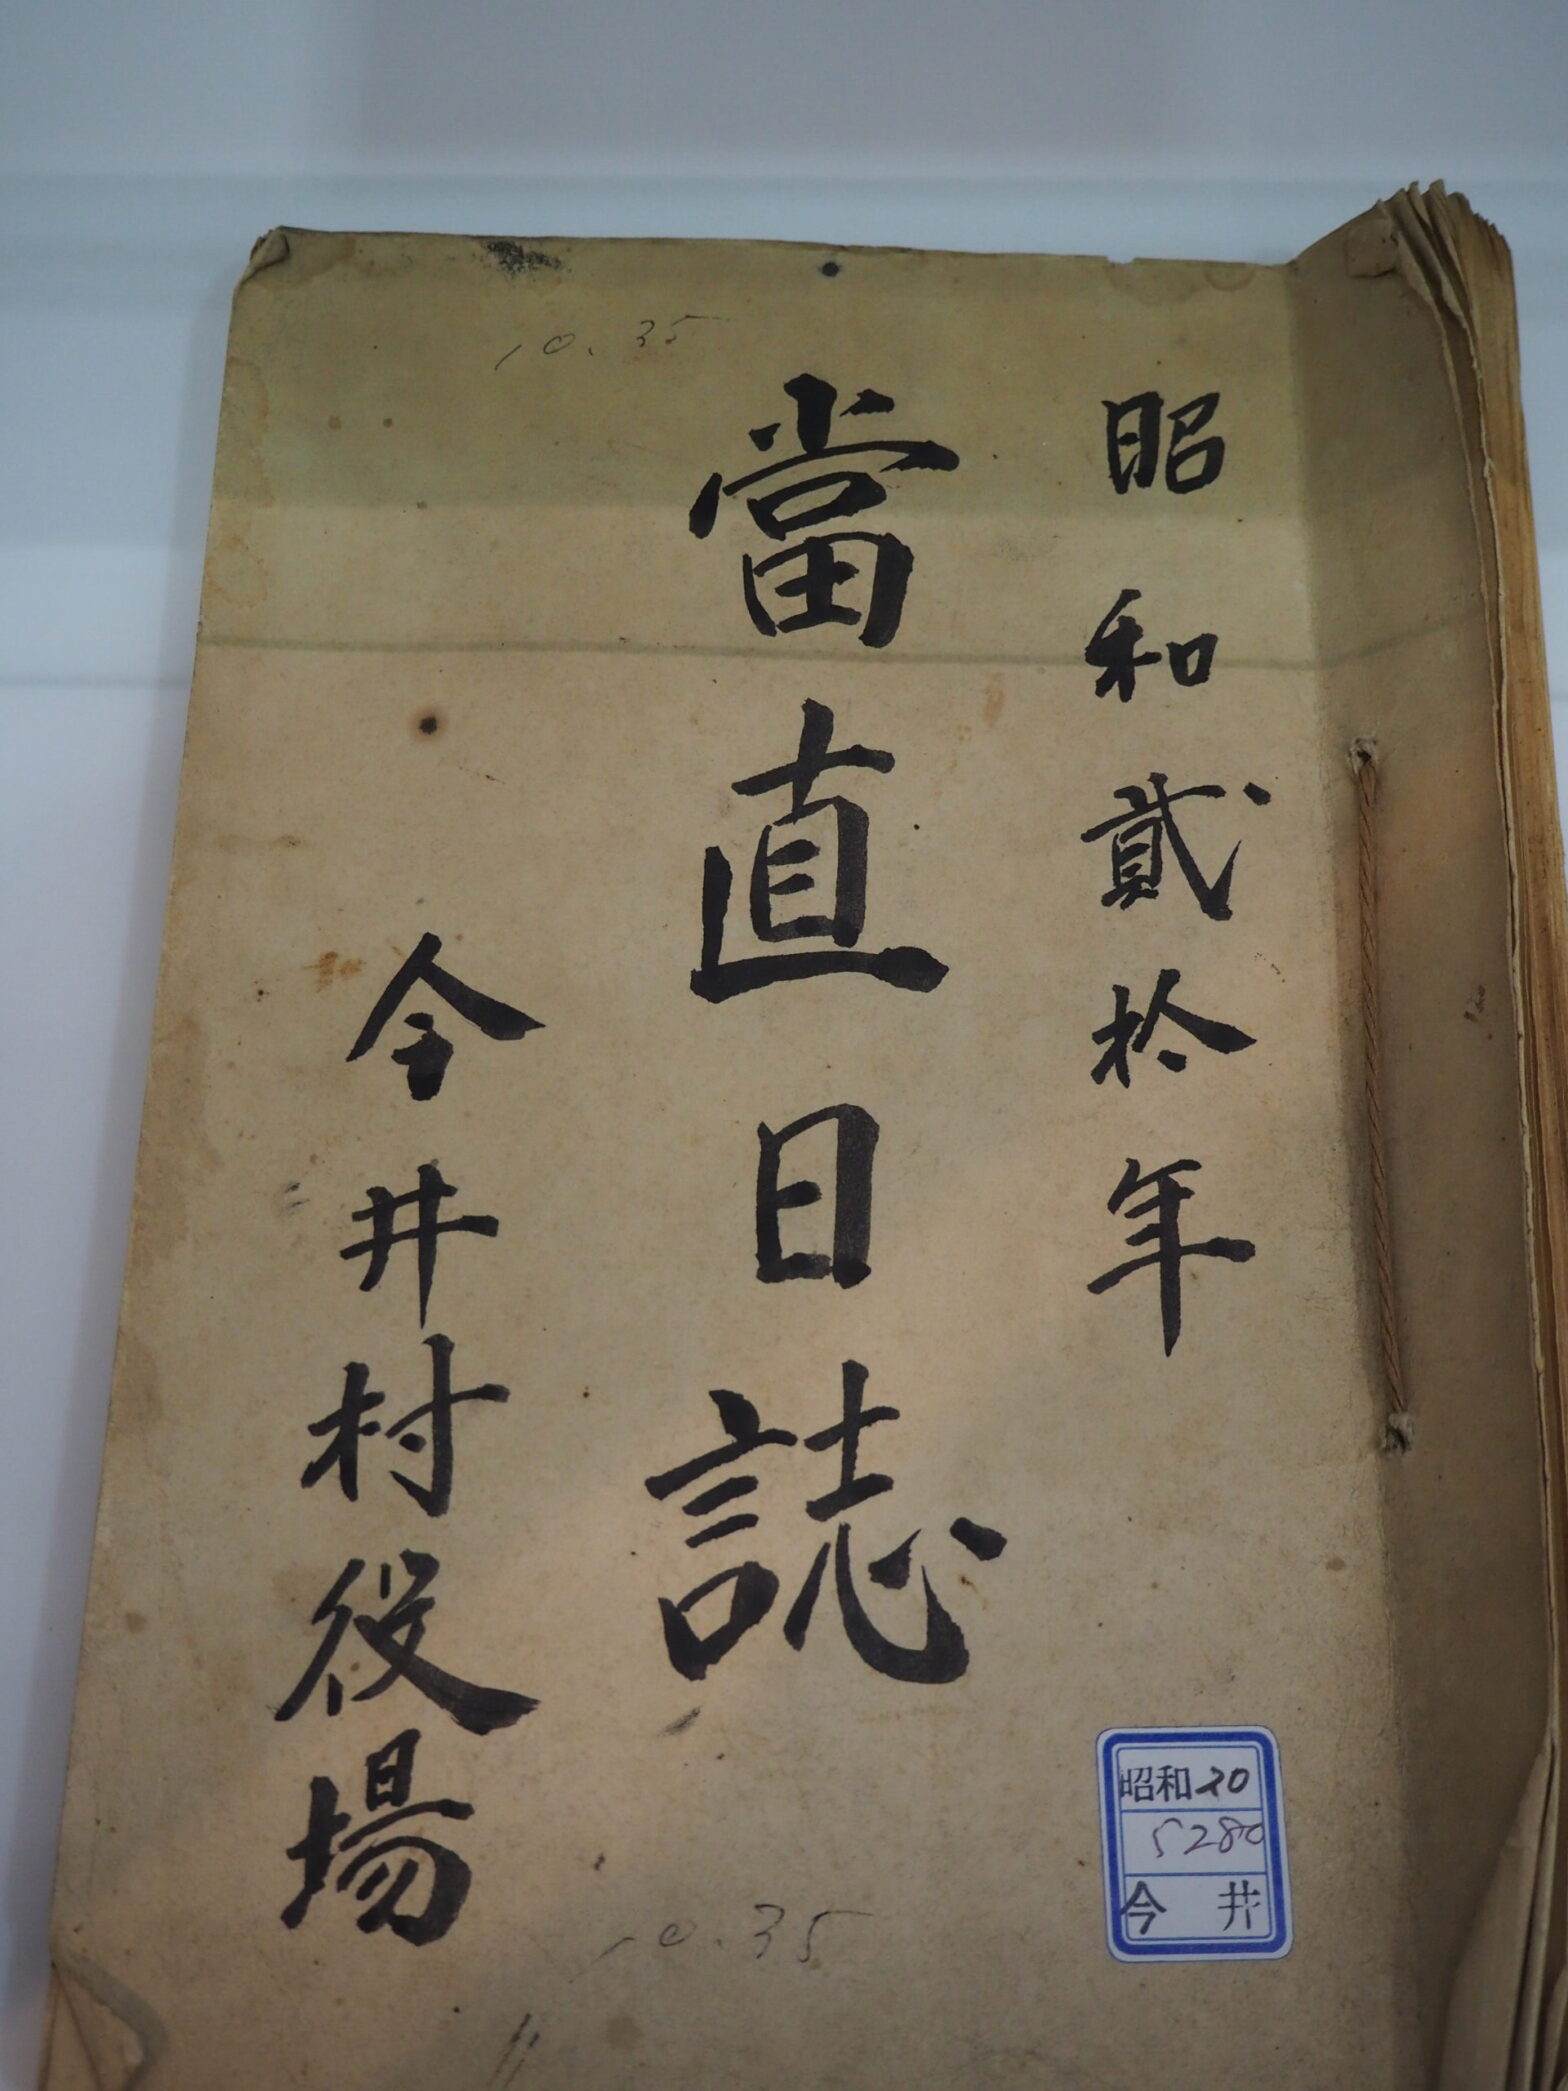 昭和貳拾年
當直日誌
今井村役場
10.35
10.35
昭和20
5280
今井